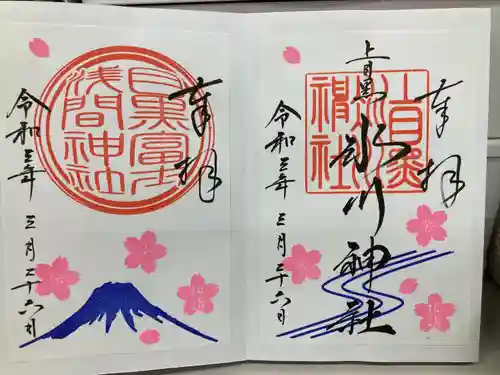 奉拝
上目黒氷川神社
上目黒
神社
令和三年三月二十六日
奉拝
目黒富士
浅間神社
令和三年三月二十六日